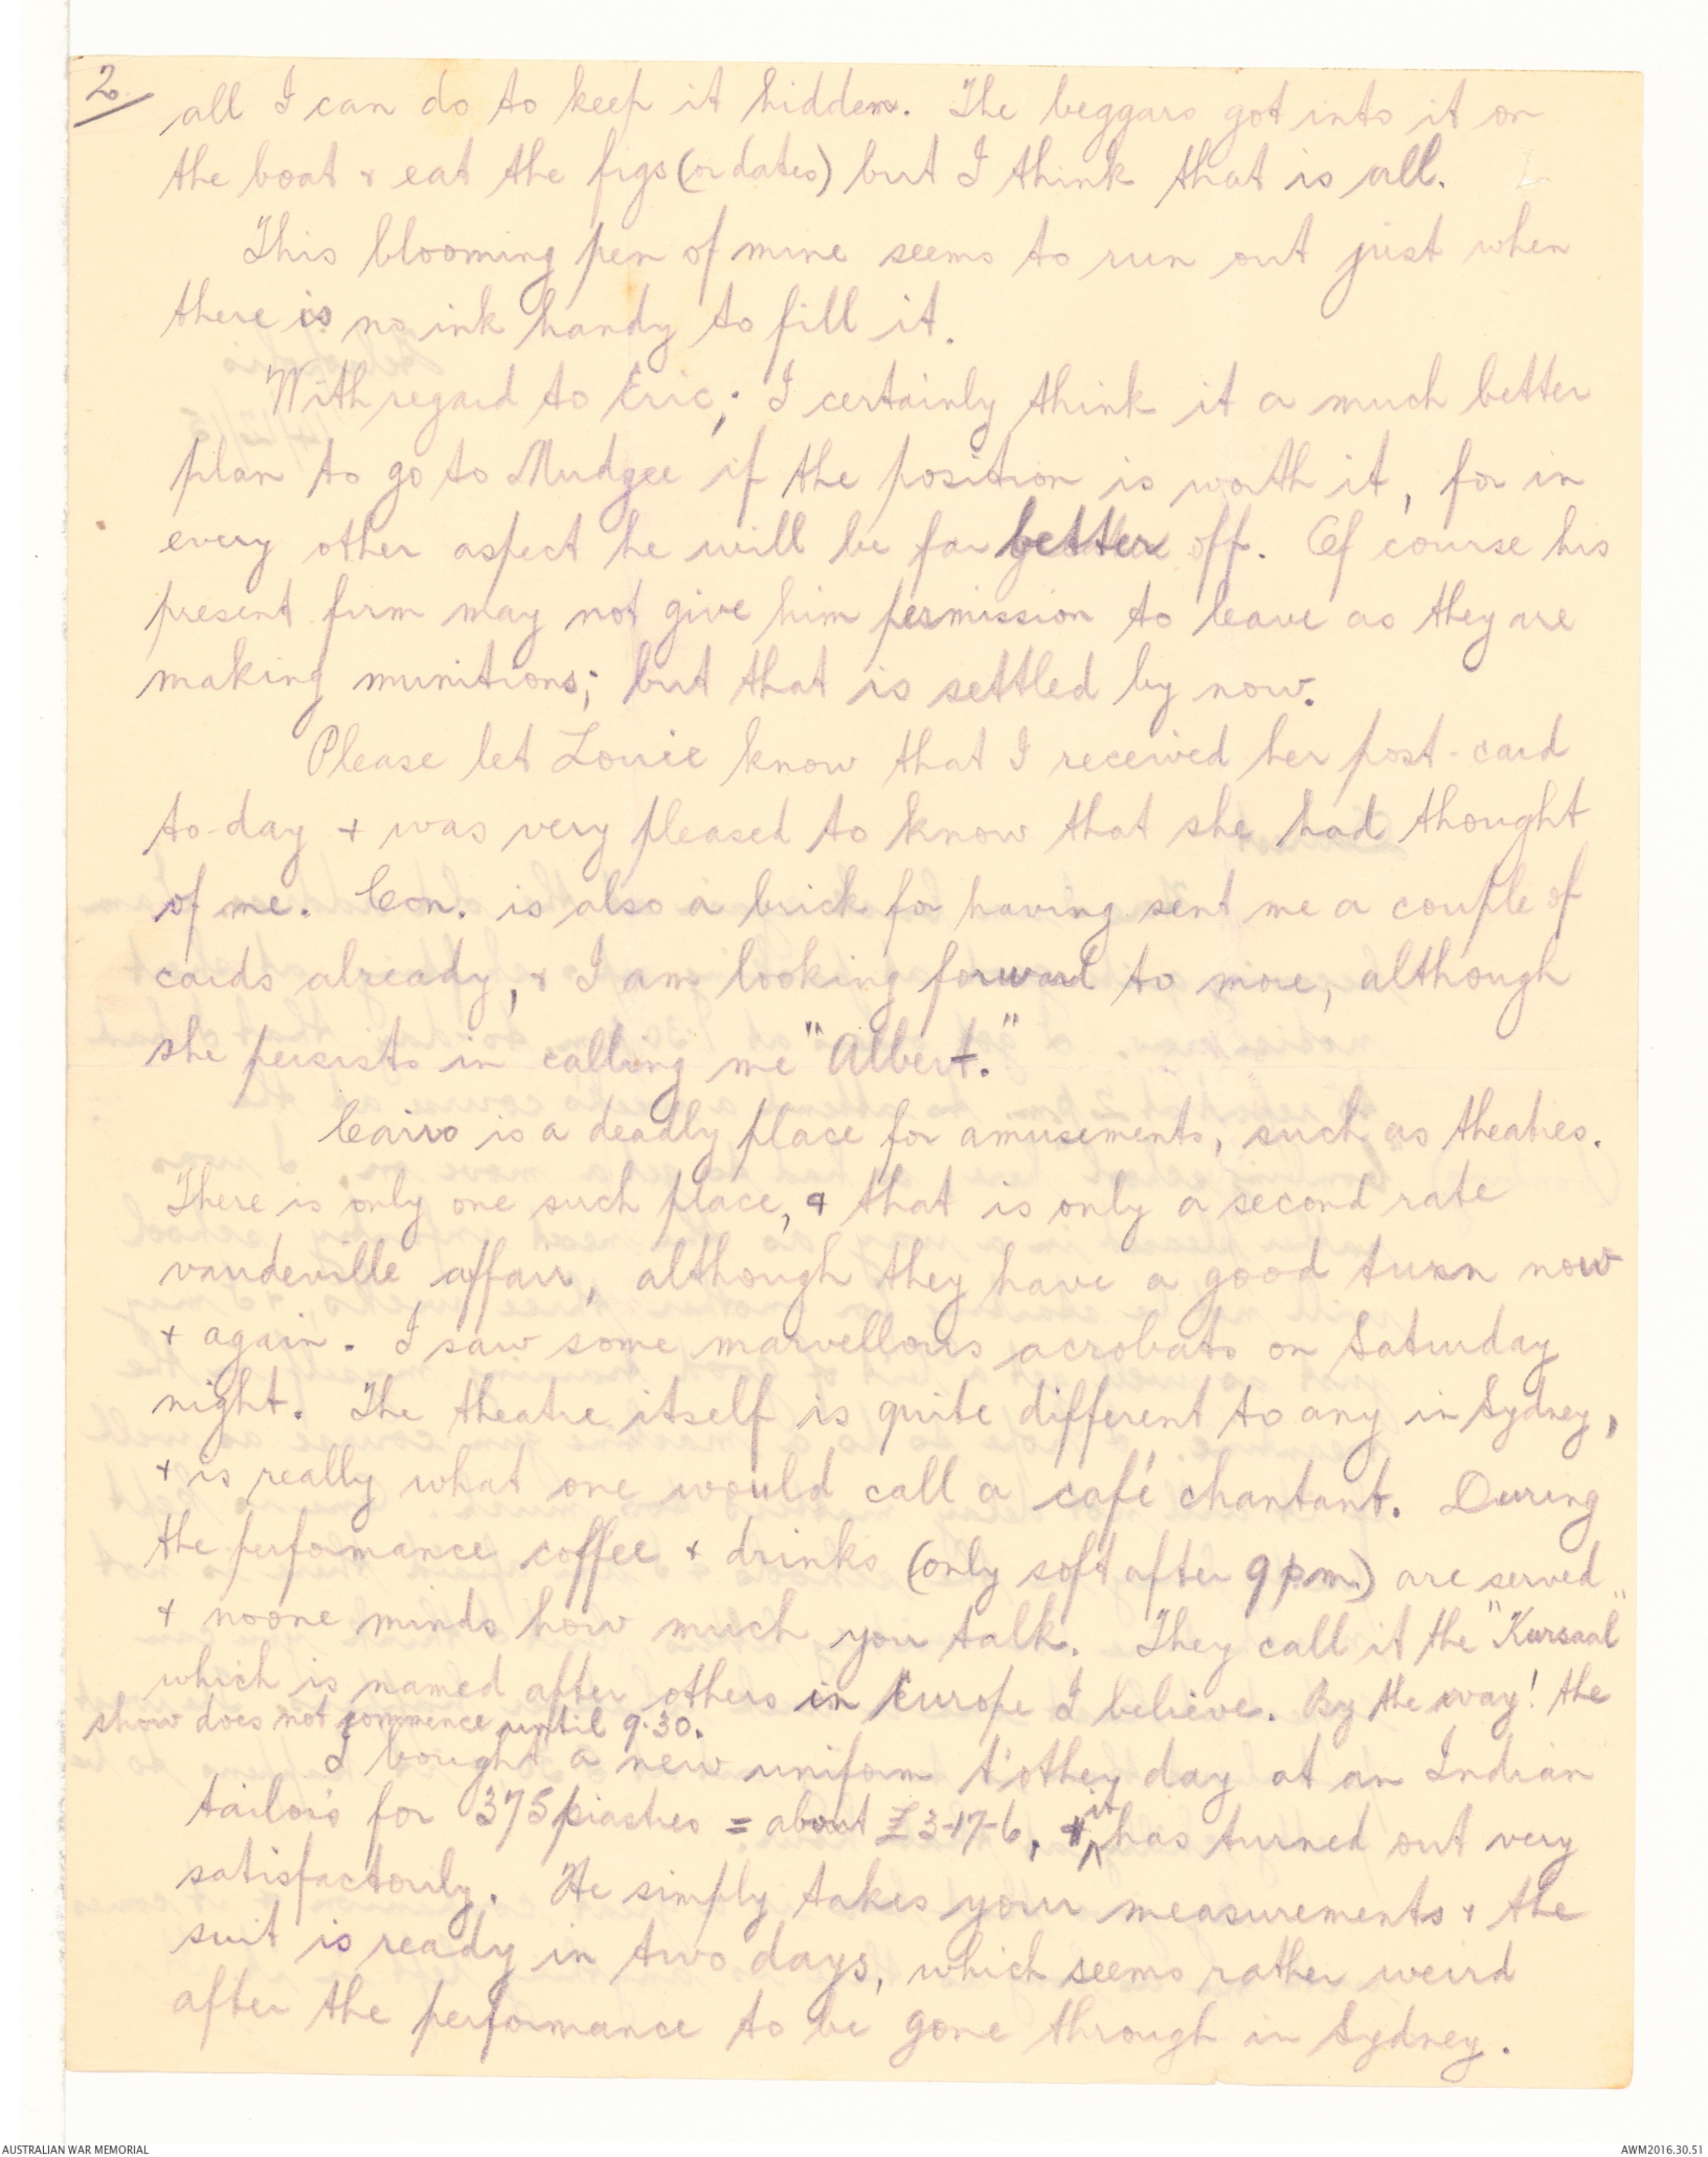 2/
all I can do to keep it hidden. The beggars got into it on
the boat & eat the figs (or dates) but I think that is all.
This blooming pen of mine seems to run out just when
there is no ink handy to fill it.
With regard to Eric; I certainly think it a much better
plan to go to Mudgee if the position is worth it, for in
every other aspect he will be far better off. Of course his
present firm may not give him permission to leave as they are
making munitions; but that is settled by now.
Please let Louie know that I received her post-card
to-day & was very pleased to know that she had thought
of me. Con. is also a brick for having sent me a couple of
cards already, & I am looking forward to more, although
she persists in calling me "Albert."
Cairo is a deadly place for amusements, such as theatres.
There is only one such place, & that is only a second rate
vaudeville affair, although they have a good turn now
& again. I saw some marvellous acrobats on Saturday
night. The theatre itself is quite different to any in Sydney,
& is really what one would call a café chantant. During
the performance coffee & drinks (only soft after 9 pm.) are served
& noone minds how much you talk. They call it the "Kursaal"
which is named after others in Europe I believe. By the way! the
show does not commence until 9.30.
I bought a new uniform t'other day at an Indian
tailors for 375 piastres = about £3-17-6, & it has turned out very
satisfactorily. He simply takes your measurements & the
suit is ready in two days, which seems rather weird
after the performance to be gone through in Sydney.
AUSTRALIAN WAR MEMORIAL
AWM2016.30.51